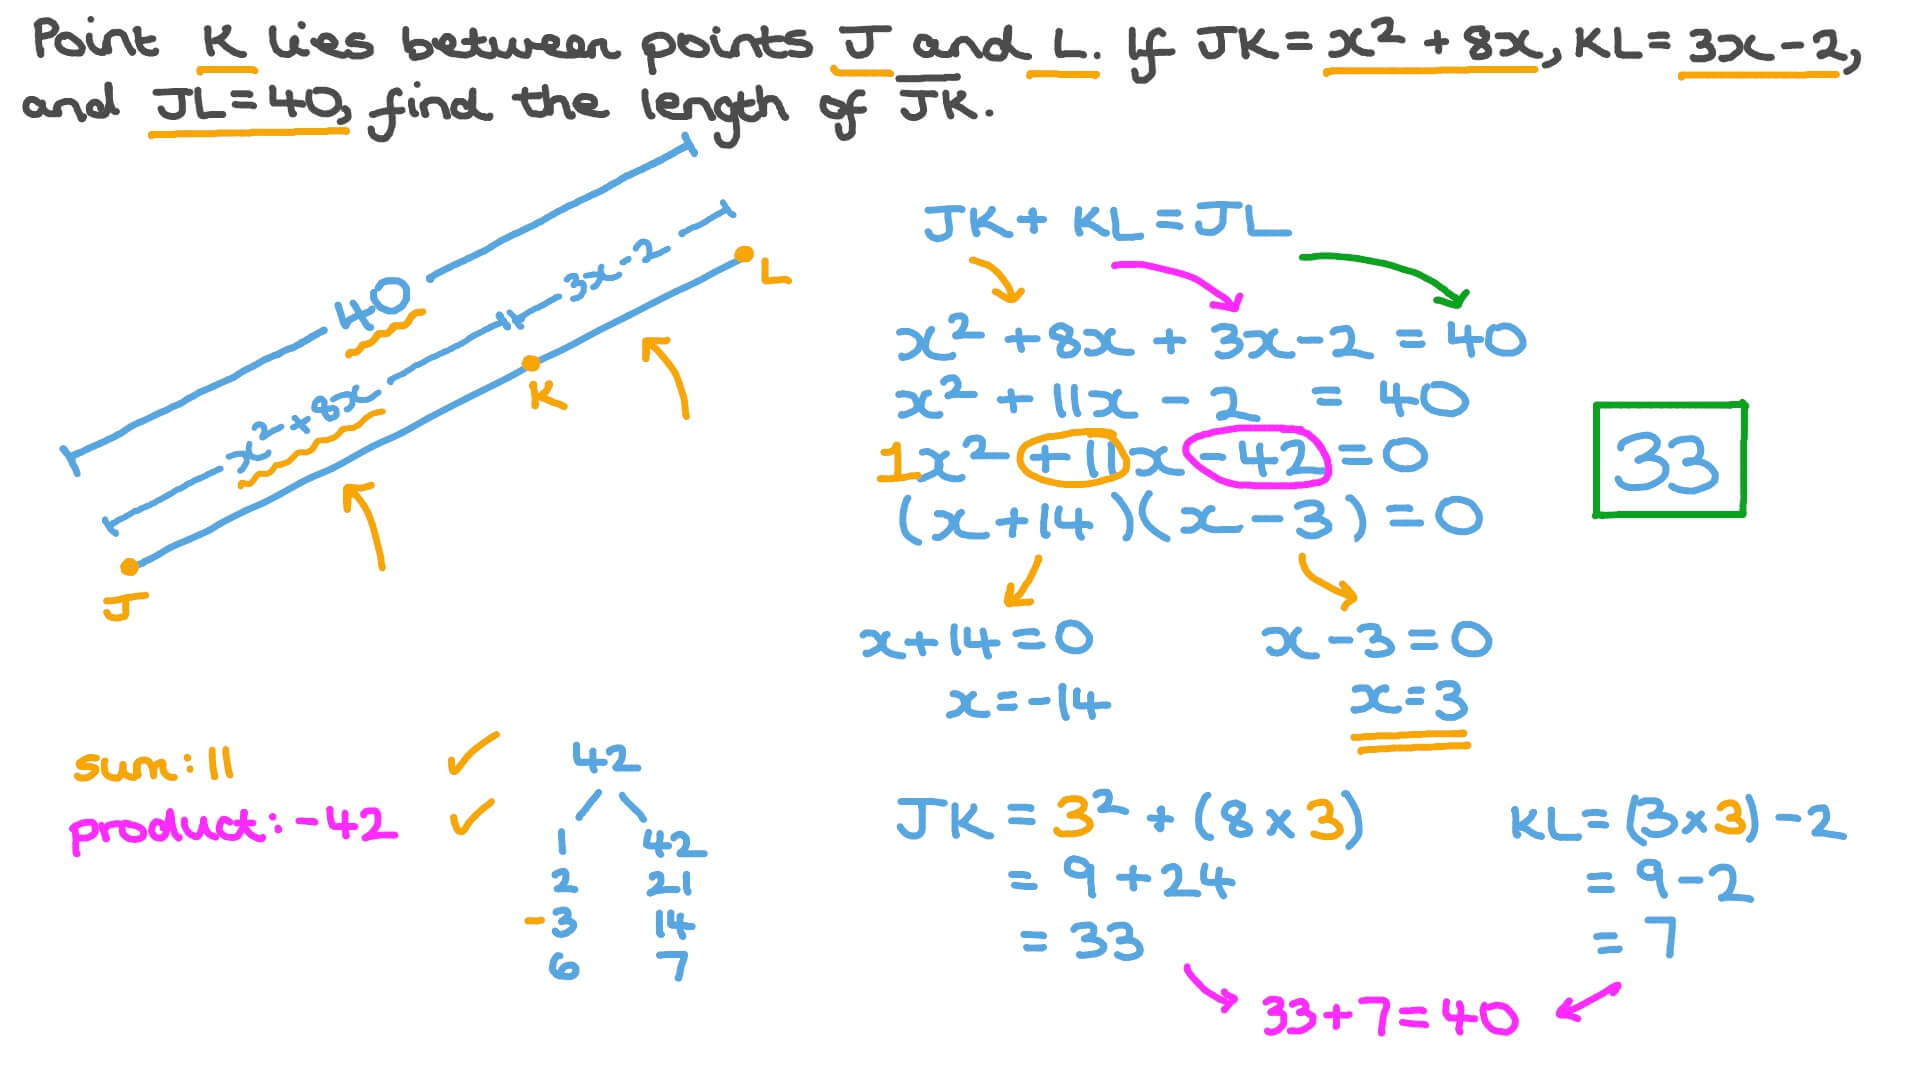 Point K lies between points J and L. If JK = x² + 8x, KL = 3x - 2,
and JL = 40, find the length of JK.
40
x² + 8x
3x - 2
L
K
J
JK + KL = JL
x² + 8x + 3x - 2 = 40
x² + 11x - 2 = 40
1x² + 11x - 42 = 0
(x + 14)(x - 3) = 0
33
x + 14 = 0
x = -14
x - 3 = 0
x = 3
sum: 11
product: -42
42
1 42
2 21
-3 14
6 7
JK = 3² + (8 × 3)
= 9 + 24
= 33
KL = (3 × 3) - 2
= 9 - 2
= 7
33 + 7 = 40